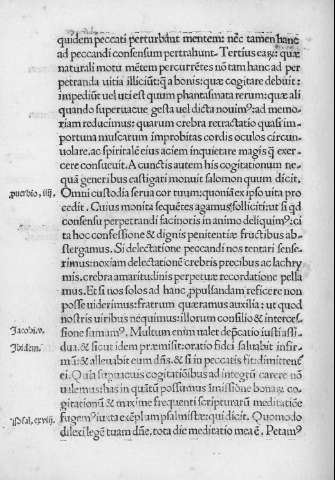 quidem peccati perturbāt mentem: nec tamen hanc
ad peccandi consensum pertrahunt. Tertius eas: quæ
naturali motu mētem percurrētes nō tam hanc ad per
petranda uitia illiciūt: q̃ a bonis: quæ cogitare debuit:
impediūt uel uti est quum phantasmata rerum: quæ ali
quando superuacue gesta uel dicta nouim⁹: ad memo
riam reducimus: quarum crebra retractatio quasi im
portuna muscarum improbitas cordis oculos circum
uolare. ac spiritalē eius aciem inquietare magis q̃ exer
cere consueuit. A cunctis autem his cogitationum ne
quā generibus castigati monuit salomon quum dicit.
ꝓuerbio. iiij.
Omni custodia serua cor tuum: quoniā ex ipso uita pro
cedit. Cuius monita sequētes agamus sollicitiut si qd
consensu perpetrandi facinoris in animo deliquim⁹: ci
ta hoc confessione & dignis penitentiæ fructibus ab
stergamus. Si delectatione peccandi nos tentari sense
rimus: noxiam delectationē crebris precibus ac lachry
mis. crebra amaritudinis perpetuæ recordatione pella
mus. Et si nos solos ad hanc ꝓpulsandam reficere non
posse uiderimus: fratrum quæramus auxilia: ut quod
nostris uiribus nequimus: illorum consilio & interces
Jacobi. v.
sione Multum enim ualet depcatio iusti assi
Ibidem.
dua. & sicut idem præmisit: oratio fidei saluabit infir
mū: & alleuabit eum dñs. & si in peccatis fit: dimittent̄
ei. Quia supuacuis cogitatiōibus ad integrū carere nō
ualemus: has in quātū possumus imissione bonaꝝ co
gitationū & maxime frequenti scripturarū meditatiōe
Psal. cxviij.
fugem⁹ iuxta exēplum psalmistæ: qui dicit. Quomodo
dilexi legē tuam dñe. tota die meditatio mea ē. Petam⁹